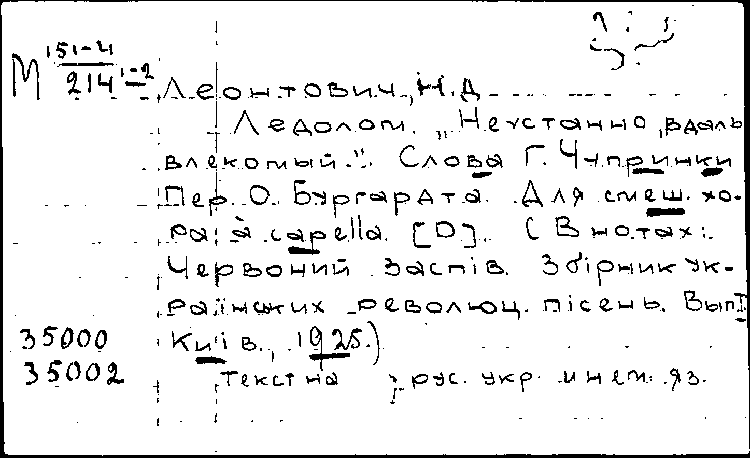 М 151-4
214 1-2
Леонтович, Н.Д
Ледолом. „Неустанно, вдаль
влекомый.". Слова Г. Чупринки
Пер. О. Бургардта. Для смеш. хо-
ра à capella. [D]. (В нотах:
Червоний заспів. Збірник ук-
раїнських революц. пісень. Вып I
35000 Київ, 1925.)
35002 Текст на рус. укр. и нем. яз.